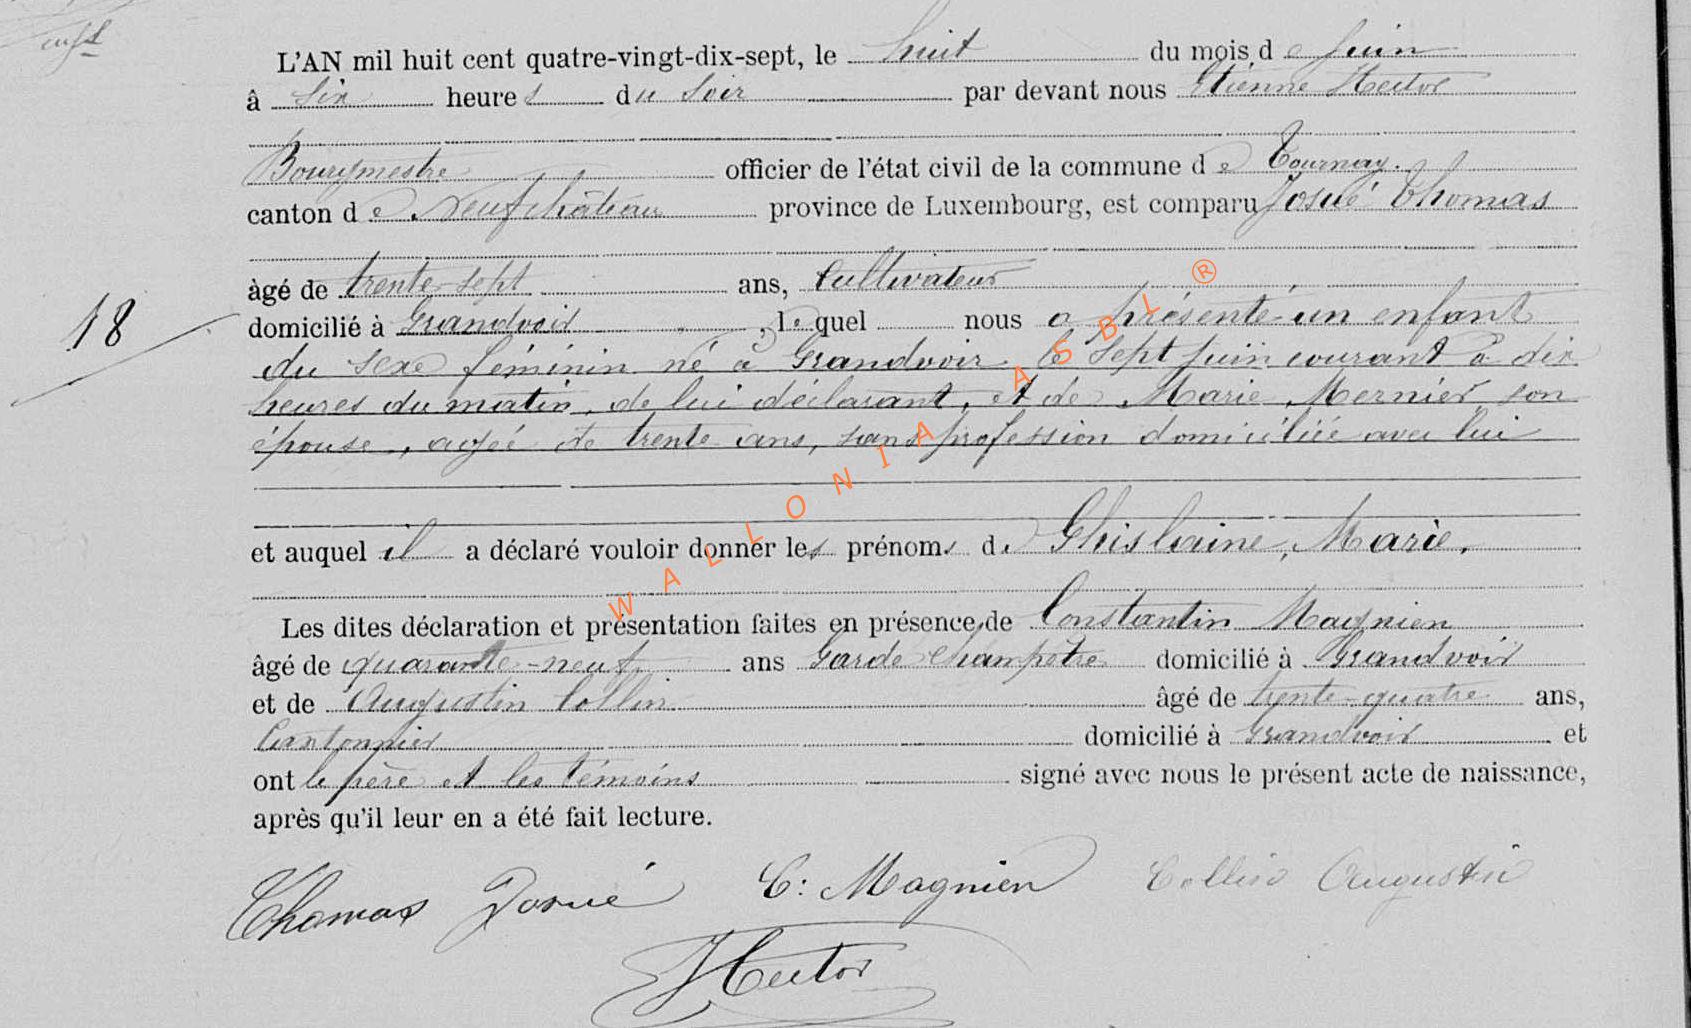 L'AN mil huit cent quatre-vingt-dix-sept, le huit du mois de Juin
à six heures du soir par devant nous Etienne Hector
Bourgmestre officier de l'état civil de la commune de Tournay.
canton de Neufchâteau province de Luxembourg, est comparu Josué Thomas
âgé de trente-sept ans, Cultivateur
18
domicilié à Grandvoir, lequel nous a présenté un enfant
du sexe féminin né à Grandvoir le sept juin courant à dix
heures du matin, de lui déclarant, et de Marie Mernier son
épouse, agée de trente ans, sans profession domiciliée avec lui
et auquel il a déclaré vouloir donner les prénoms de Ghislaine, Marie.
Les dites déclaration et présentation faites en présence de Constantin Magnien
âgé de quarante-neuf ans Garde champêtre domicilié à Grandvoir
et de Augustin Collin âgé de trente-quatre ans,
Cantonnier domicilié à Grandvoir et
ont le père et les témoins signé avec nous le présent acte de naissance,
après qu'il leur en a été fait lecture.
Thomas Josué C: Magnien Collin Augustin
Hector
WALLONIA ASBL ®